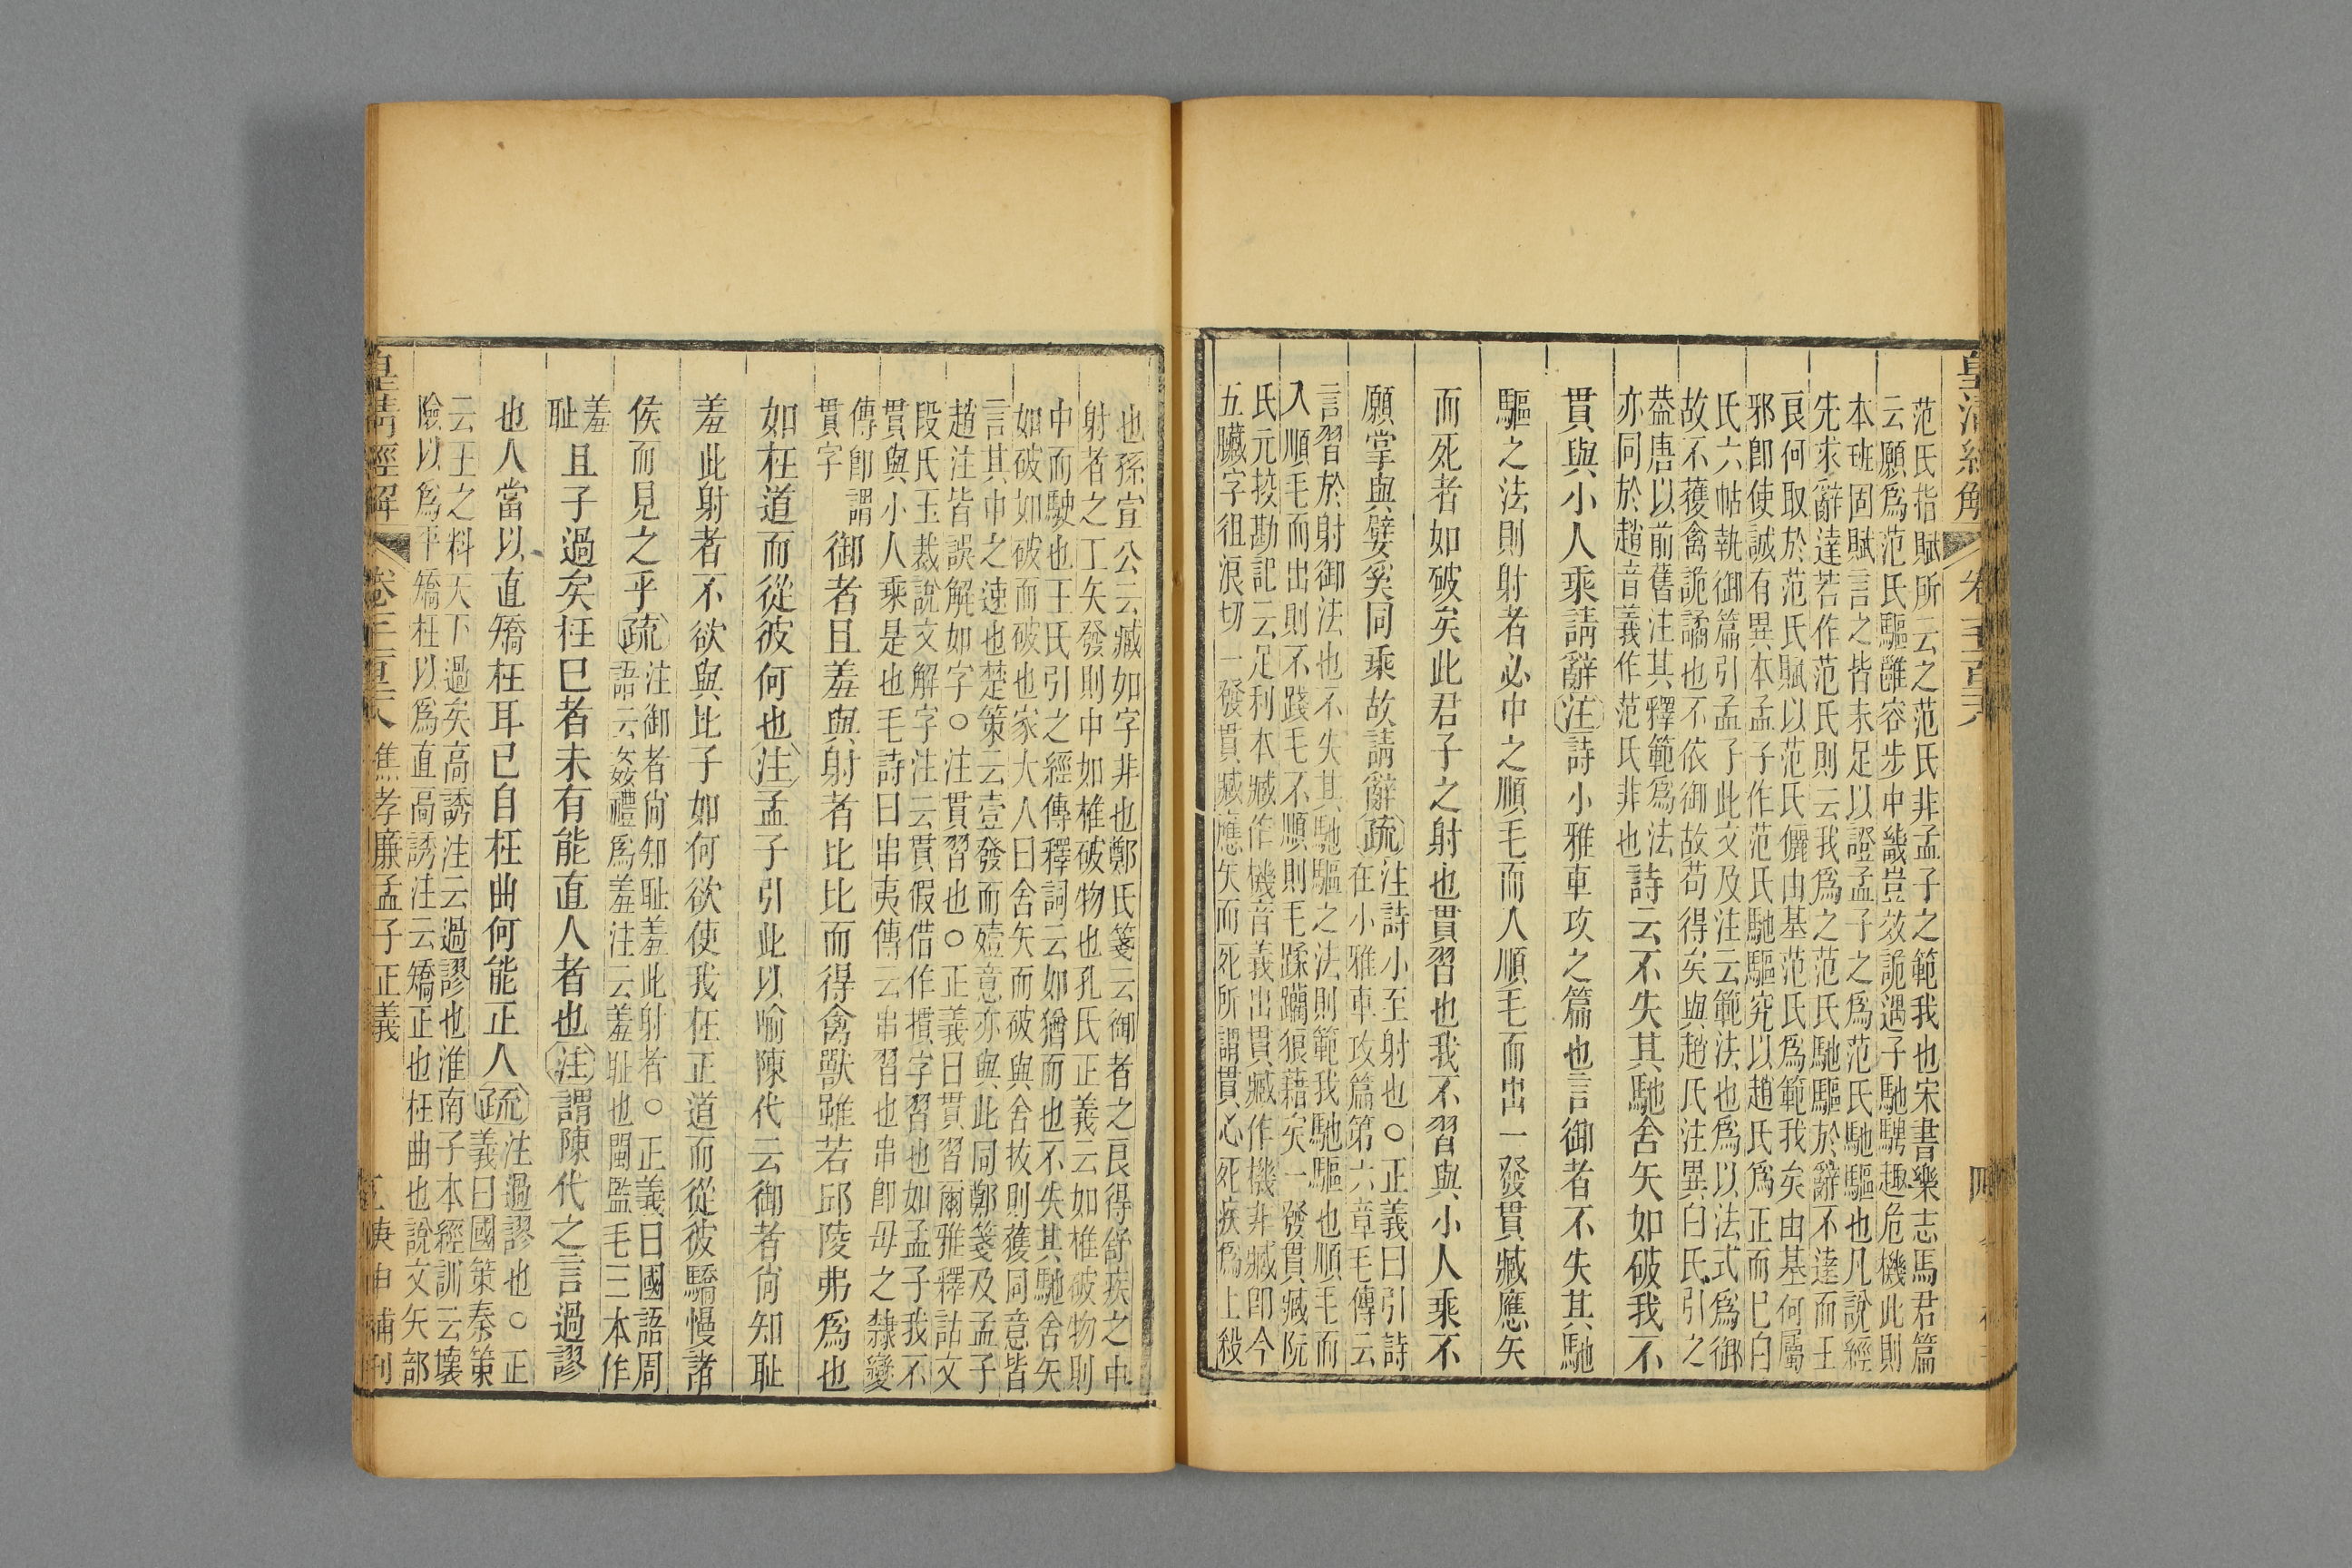 范氏指賦所云之范氏非孟子之範我也宋書樂志馬君篇
云願爲范氏驅雝容步中畿豈效詭遇子馳騁趣危機此則
本班固賦言之皆未足以證孟子之爲范氏馳驅也凡說經
先求辭達若作范氏則云我爲之范氏馳驅於辭不達而王
良何取於范氏賦以范氏儷由基范氏爲範我矣由基何屬
邪卽使誠有異本孟子作范氏馳驅究以趙氏爲正而巳白
氏六帖執御篇引孟子此文及注云範法也爲以法式爲御
故不獲禽詭譎也不依御故苟得矣與趙氏注異白氏引之
葢唐以前舊注其釋範爲法
亦同於趙音義作范氏非也
詩云不失其馳舍矢如破我不
貫與小人乘請辭注詩小雅車攻之篇也言御者不失其馳
驅之法則射者必中之順毛而入順毛而出一發貫臧應矢
而死者如破矣此君子之射也貫習也我不習與小人乘不
願掌與嬖奚同乘故請辭疏
注詩小至射也○正義曰引詩
在小雅車攻篇第六章毛傳云
言習於射御法也不失其馳驅之法則範我馳驅也順毛而
入順毛而出則不踐毛不順則毛蹂躪狼藉矣一發貫臧阮
氏元挍勘記云足利本臧作機音義出貫臧作機非臧卽今
五臟字徂浪切一發貫臧應矢而死所謂貫心死疾爲上殺
也孫宣公云臧如字非也鄭氏箋云御者之良得舒疾之中
射者之工矢發則中如椎破物也孔氏正義云如椎破物則
中而駛也王氏引之經傳釋詞云如猶而也不失其馳舍矢
如破如破而破也家大人曰舍矢而破與舍拔則獲同意皆
言其中之速也楚策云壹發而殪意亦與此同鄭箋及孟子
趙注皆誤解如字○注貫習也○正義曰貫習爾雅釋詁文
段氏玉裁說文解字注云貫假借作摜字習也如孟子我不
貫與小人乘是也毛詩曰串夷傳云串習也串卽毋之隸變
傳卽謂
貫字
御者且羞與射者比比而得禽獸雖若邱陵弗爲也
如枉道而從彼何也注孟子引此以喻陳代云御者尙知恥
羞此射者不欲與比子如何欲使我枉正道而從彼驕慢諸
侯而見之乎疏
注御者尙知恥羞此射者○正義曰國語周
語云姦禮爲羞注云羞恥也閩監毛三本作
羞
恥
且子過矣枉巳者未有能直人者也注謂陳代之言過謬
也人當以直矯枉耳已自枉曲何能正人疏
注過謬也○正
義曰國策秦策
云王之料天下過矣高誘注云過謬也淮南子本經訓云壞
險以爲平矯枉以爲直高誘注云矯正也枉曲也說文矢部
皇淸經解
焦孝廉孟子正義
庚申補刊